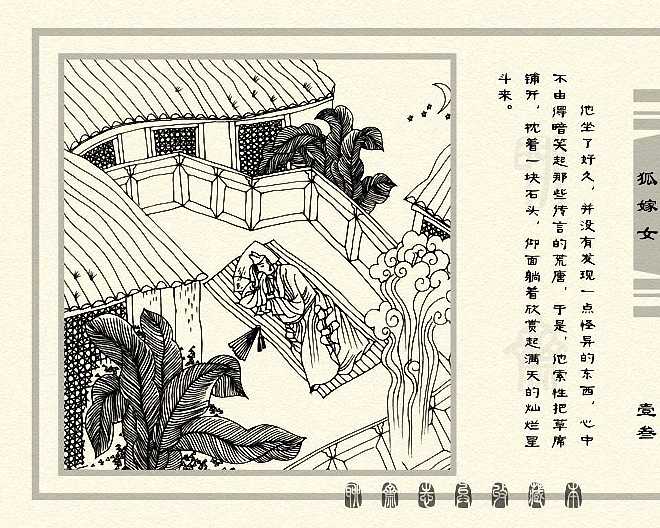 他坐了好久，并没有发现一点怪异的东西，心中
不由得暗笑起那些传言的荒唐，于是，他索性把草席
铺开，枕着一块石头，仰面躺着欣赏起满天的灿烂星
斗来。
狐嫁女
壹叁
聊斋志异
藏本